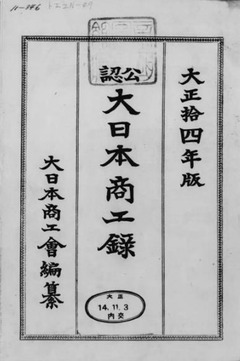 大正拾四年版
公認
大日本商工錄
大日本商工會編纂
大正
14.11.3
内交